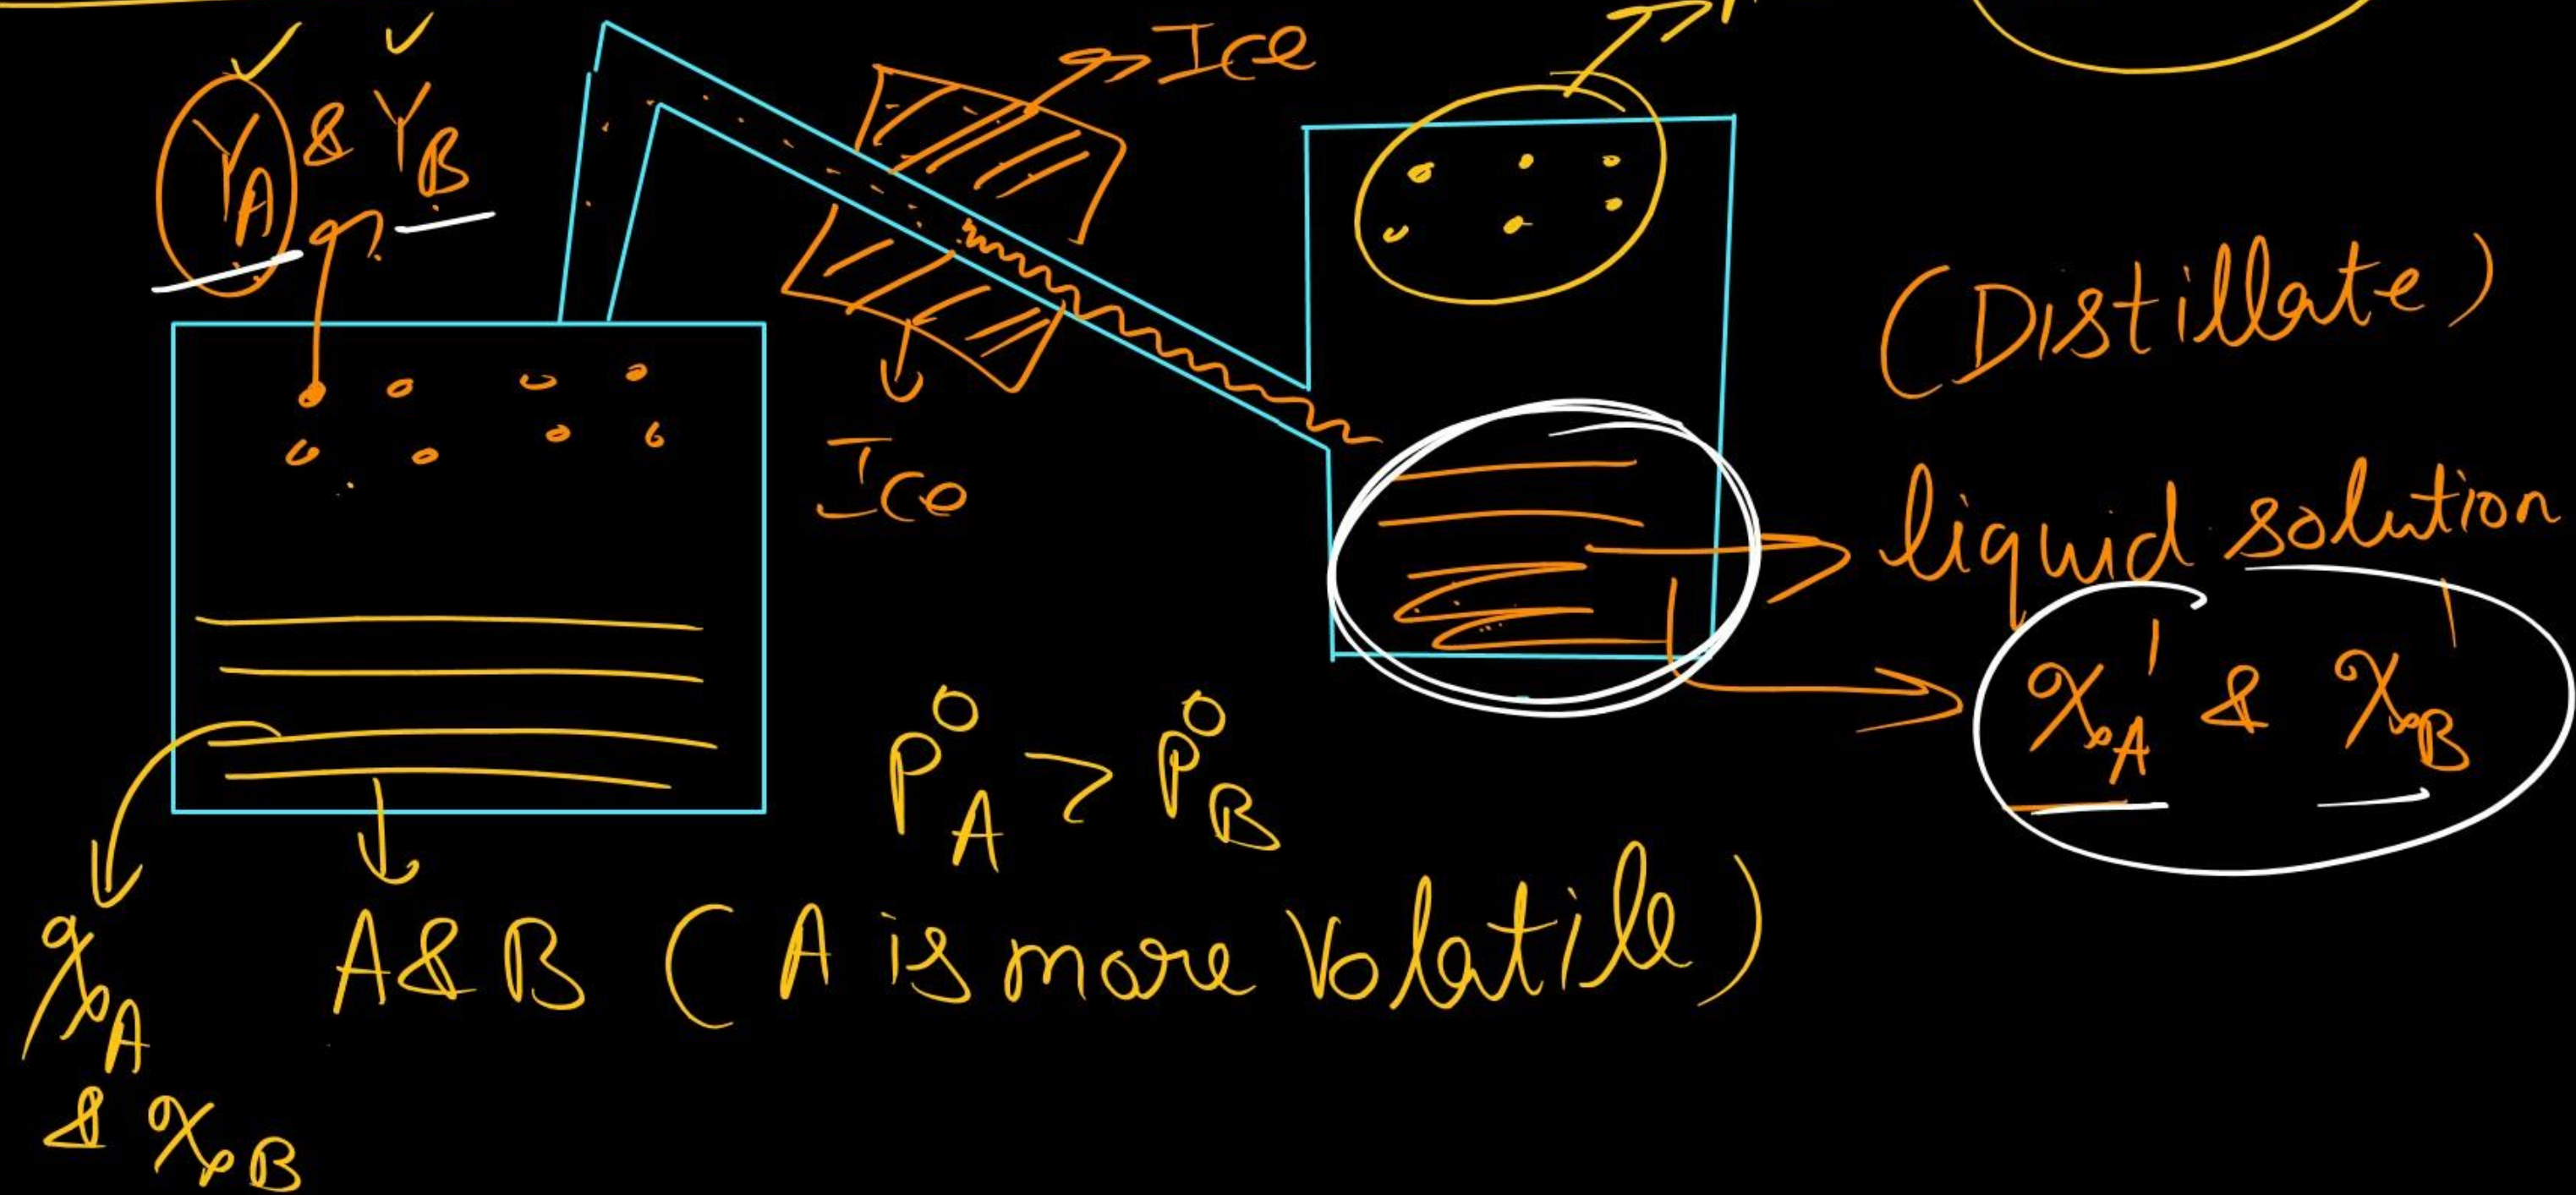 Y_A & Y_B
Ice
Ice
(Distillate)
liquid solution
x_A' & x_B'
P°_A > P°_B
A & B (A is more Volatile)
x_A
& x_B